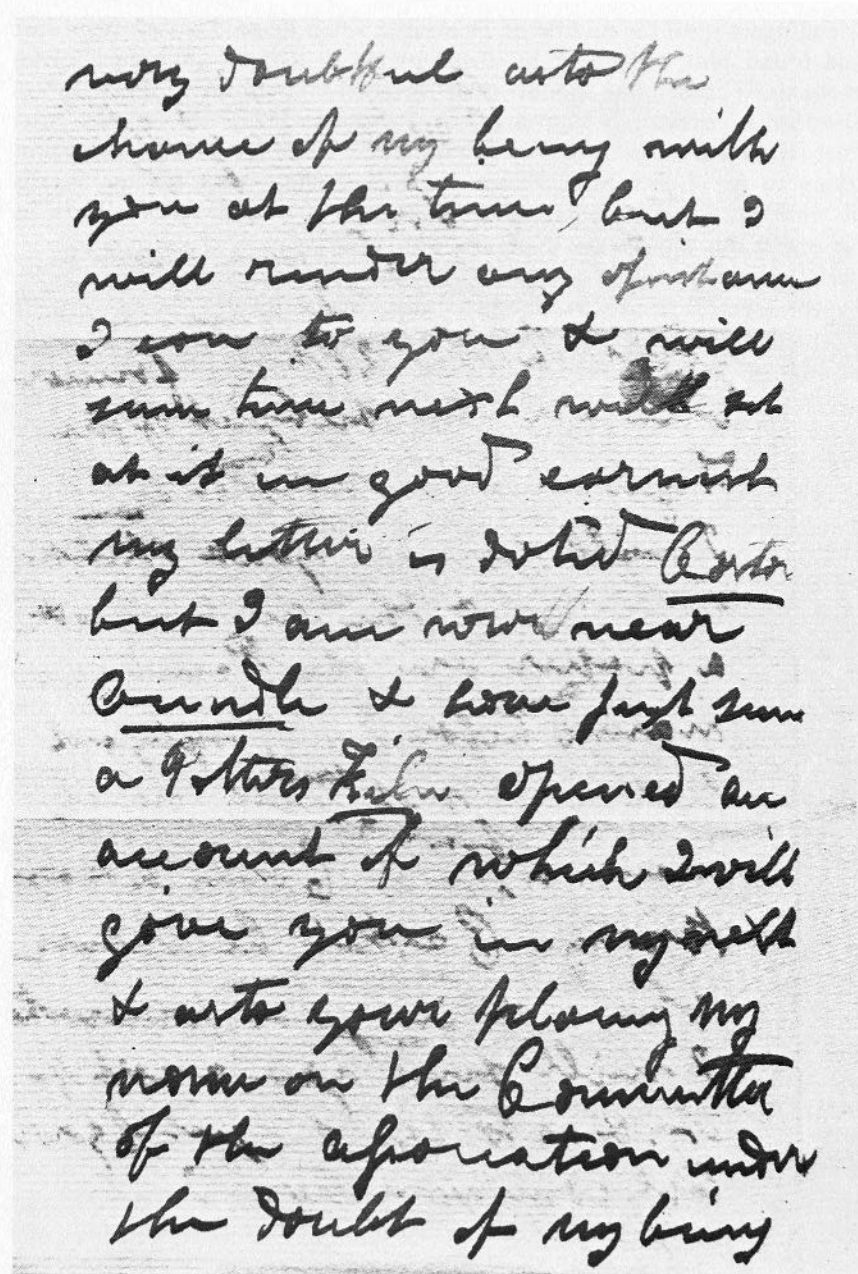 very doubtful as to the
chance of my being with
you at the time, but I
will render any assistance
I can to you & will
some time next week set
at it in good earnest
my letter is dated Castor
but I am now near
Oundle & have just seen
a Potters Kiln opened an
account of which I will
give you in my next
& as to your placing my
name on the Committee
of the association under
the doubt of my being